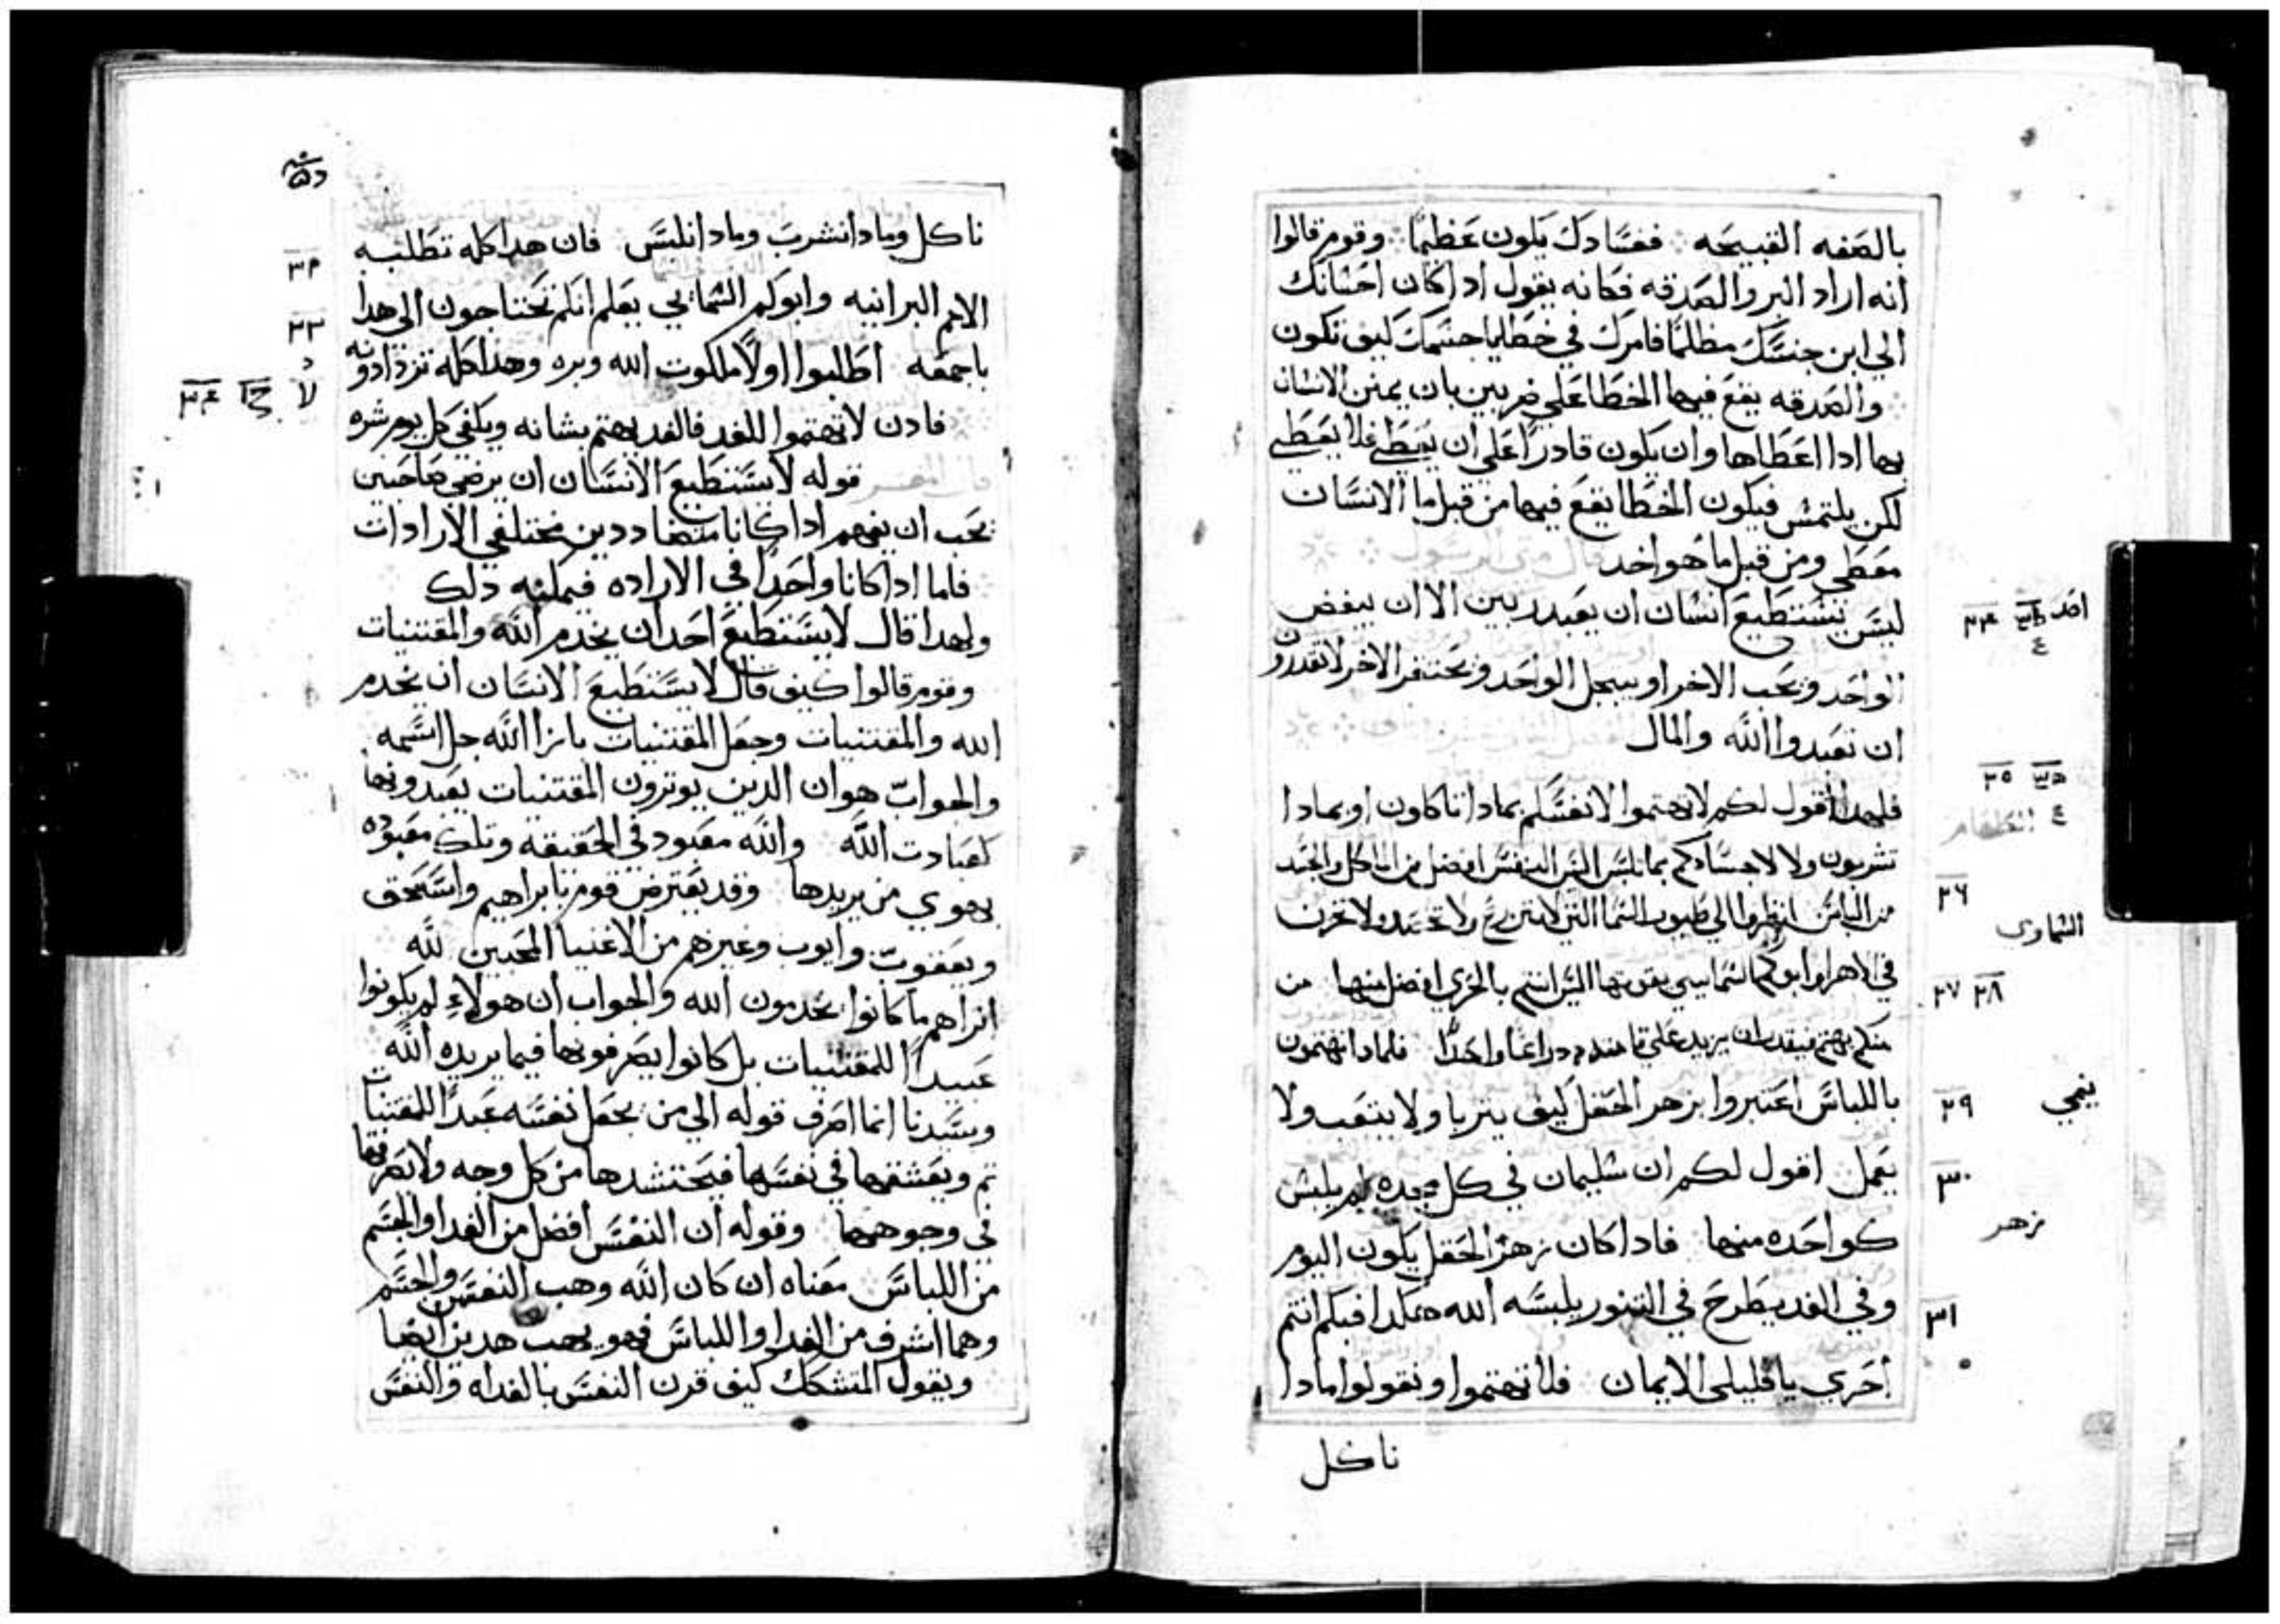 بالصفه القبيحه ففسادك يكون عظيما وقوم قالوا
انه اراد البر والصدقه فكانه يقول اداكان احسانك
الي ابن جنسك مظلما فامرك في خطايا جسمك كيف تكون
والصدقه يقع فيها الخطا علي ضربين بان يمنن الانسان
بها ادا اعطاها وان يكون قادرا علي ان يعطي فلا يعطي
لكن يلتمس فيكون الخطا يقع فيها من قبل ما الانسان
معطي ومن قبل ما هو اخد قال متي الرسول
ليس يستطيع انسان ان يعبد ربين الا ان يبغض
الواحد ويحب الاخر او يبجل الواحد ويحتقر الاخر لا تقدرون
ان تعبدوا الله والمال
فلهدا اقول لكم لا تهتموا لانفسكم بمادا تاكلون او بمادا
تشربون ولا لاجسادكم بما تلبس اليس النفس افضل من الماكل والجسد
من اللباس انظروا الي طيور السما التي لا تزرع ولا تحصد ولا تخزن
في الاهرا وابوكم السمايي يقوتها اليس انتم بالحري افضل منها من
منكم يهتم فيقدر ان يزيد علي قامته دراعا واحدا فلمادا تهتمون
باللباس اعتبروا بزهر الحقل كيف يتربا ولا يتعب ولا
يعمل اقول لكم ان سليمان في كل مجده لم يلبس
كواحده منها فاداكان زهر الحقل يكون اليوم
وفي الغد يطرح في التنور يلبسه الله هكدا فبكم انتم
احري يا قليلي الايمان فلا تهتموا وتقولوا مادا
ناكل
٣٤
٣٥
٣٦
السماوي
٣٧ ٣٨
ينمي
٣٩
٣٠
زهر
٣١
ناكل ومادا نشرب ومادا نلبس فان هدا كله تطلبه
الامم البرانيه وابوكم السمايي يعلم انكم تحتاجون الي هدا
باجمعه اطلبوا اولا ملكوت الله وبره وهدا كله تزدادونه
فادن لا تهتموا للغد فالغد يهتم بشانه ويكفي كل يوم شره
قال المفسر قوله لا يستطيع الانسان ان يرضي صاحبين
يجب ان يفهم اداكانا متضاددين مختلفي الارادات
فاما اداكانا واحدا في الاراده فيمكنه دلك
ولهدا قال لا يستطيع احد ان يخدم الله والمقتنيات
وقوم قالوا كيف قال لا يستطيع الانسان ان يخدم
الله والمقتنيات وجعل المقتنيات بازا الله جل اسمه
والجواب هو ان الدين يوترون المقتنيات يعبدونها
كعبادت الله والله معبود في الحقيقه وتلك معبوده
بهوي من يريدها وقد يعترض قوم بابراهيم واسحق
ويعقوب وايوب وغيرهم من الاغنيا المحبين لله
اتراهم ما كانوا يخدمون الله والجواب ان هولاء لم يكونوا
عبيدا للمقتنيات بل كانوا يصرفونها فيما يريده الله
وسيدنا انما اصرف قوله الي من يجعل نفسه عبدا للمقتنيات
تم ويعشقها في نفسها فيحتشدها من كل وجه ولا يصرفها
في وجوهها وقوله ان النفس افضل من الغدا والجسم
من اللباس معناه ان كان الله وهب النفس والجسم
وهما اشرف من الغدا واللباس فهو يهب هدين ايضا
ويقول المتشكك كيف قرن النفس بالغداه والنفس
٣٢
٣٣
٣٤